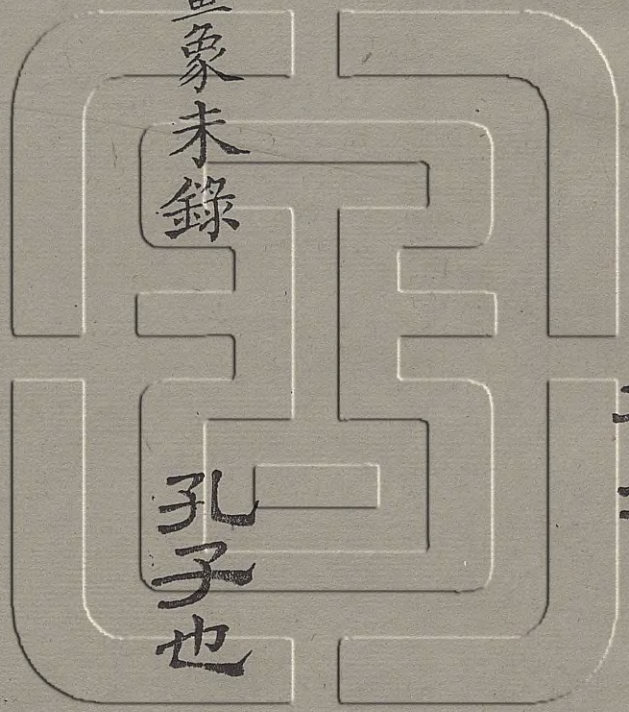 象未錄
孔子也